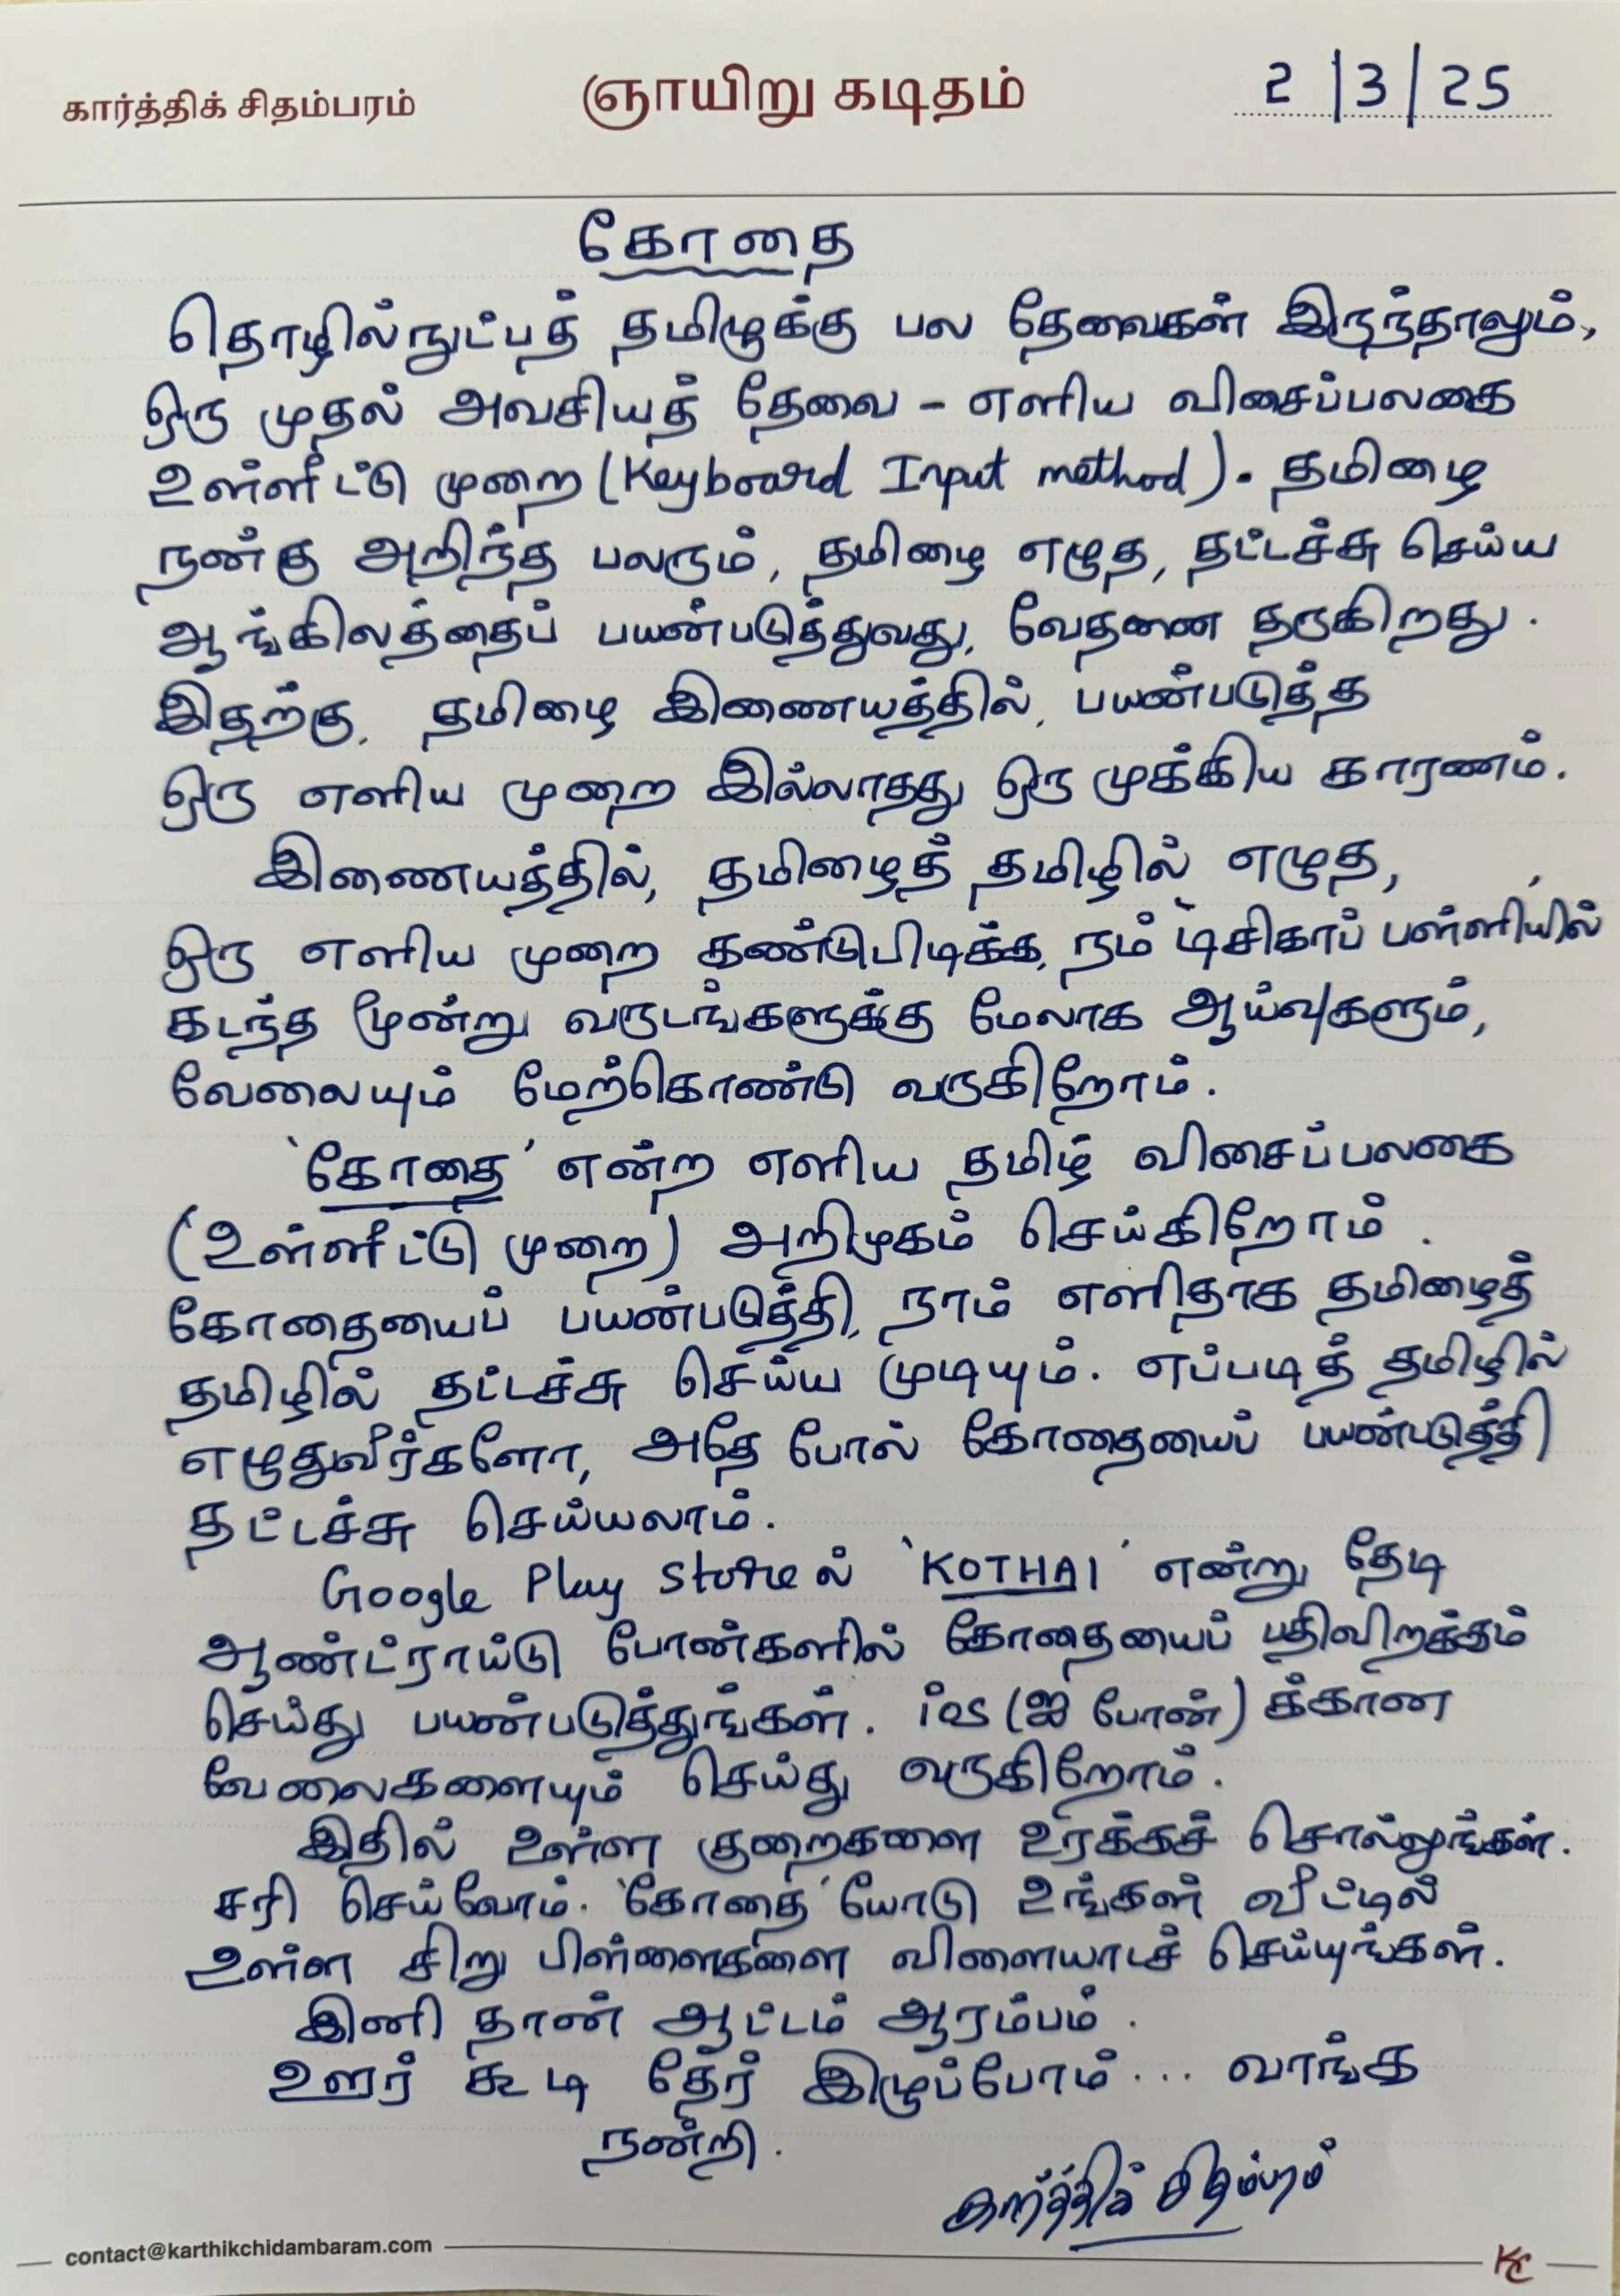 கார்த்திக் சிதம்பரம் ஞாயிறு கடிதம் 2/3/25
கோதை
தொழில்நுட்பத் தமிழுக்கு பல தேவைகள் இருந்தாலும்,
ஒரு முதல் அவசியத் தேவை - எளிய விசைப்பலகை
உள்ளீட்டு முறை (Keyboard Input method). தமிழை
நன்கு அறிந்த பலரும், தமிழை எழுத, தட்டச்சு செய்ய
ஆங்கிலத்தைப் பயன்படுத்துவது, வேதனை தருகிறது.
இதற்கு, தமிழை இணையத்தில், பயன்படுத்த
ஒரு எளிய முறை இல்லாதது ஒரு முக்கிய காரணம்.
இணையத்தில், தமிழைத் தமிழில் எழுத,
ஒரு எளிய முறை கண்டுபிடிக்க, நம் டிசிகாப் பள்ளியில்
கடந்த மூன்று வருடங்களுக்கு மேலாக ஆய்வுகளும்,
வேலையும் மேற்கொண்டு வருகிறோம்.
'கோதை' என்ற எளிய தமிழ் விசைப்பலகை
(உள்ளீட்டு முறை) அறிமுகம் செய்கிறோம்.
கோதையைப் பயன்படுத்தி, நாம் எளிதாக தமிழைத்
தமிழில் தட்டச்சு செய்ய முடியும். எப்படித் தமிழில்
எழுதுவீர்களோ, அதே போல் கோதையைப் பயன்படுத்தி
தட்டச்சு செய்யலாம்.
Google Play Storeல் 'KOTHAI' என்று தேடி
ஆண்ட்ராய்டு போன்களில் கோதையைப் பதிவிறக்கம்
செய்து பயன்படுத்துங்கள். ios (ஐ போன்) க்கான
வேலைகளையும் செய்து வருகிறோம்.
இதில் உள்ள குறைகளை உரக்கச் சொல்லுங்கள்.
சரி செய்வோம். 'கோதை'யோடு உங்கள் வீட்டில்
உள்ள சிறு பிள்ளைகளை விளையாடச் செய்யுங்கள்.
இனி தான் ஆட்டம் ஆரம்பம்.
ஊர் கூடி தேர் இழுப்போம்... வாங்க
நன்றி.
கார்த்திக் சிதம்பரம்
contact@karthikchidambaram.com KC